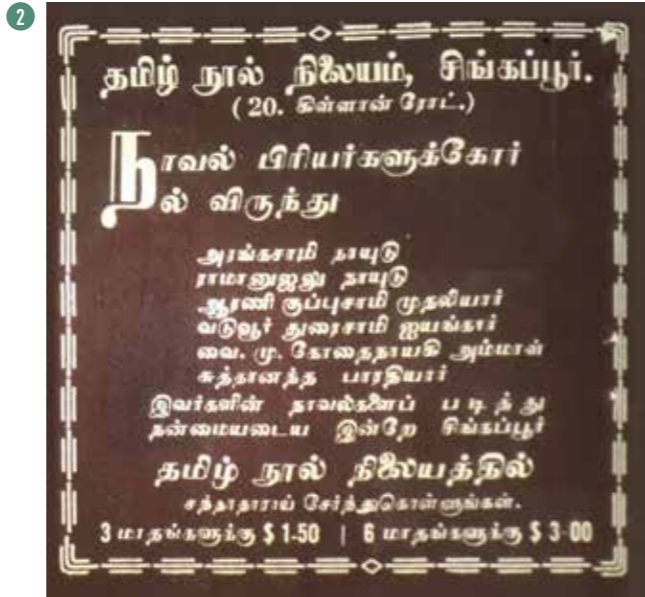 2
தமிழ் நூல் நிலையம், சிங்கப்பூர்.
( 20. கிள்ளான் ரோட்.)
நாவல் பிரியர்களுக்கோர்
நல் விருந்து
அரங்கசாமி நாயுடு
ராமானுஜலு நாயுடு
ஆரணி குப்புசாமி முதலியார்
வடுவூர் துரைசாமி ஐயங்கார்
வை. மு. கோதைநாயகி அம்மாள்
சுத்தானந்த பாரதியார்
இவர்களின் நாவல்களைப் படித்து
தன்மையடைய இன்றே சிங்கப்பூர்
தமிழ் நூல் நிலையத்தில்
சந்தாதாராய் சேர்ந்துகொள்ளுங்கள்.
3 மாதங்களுக்கு $ 1-50 | 6 மாதங்களுக்கு $ 3-00